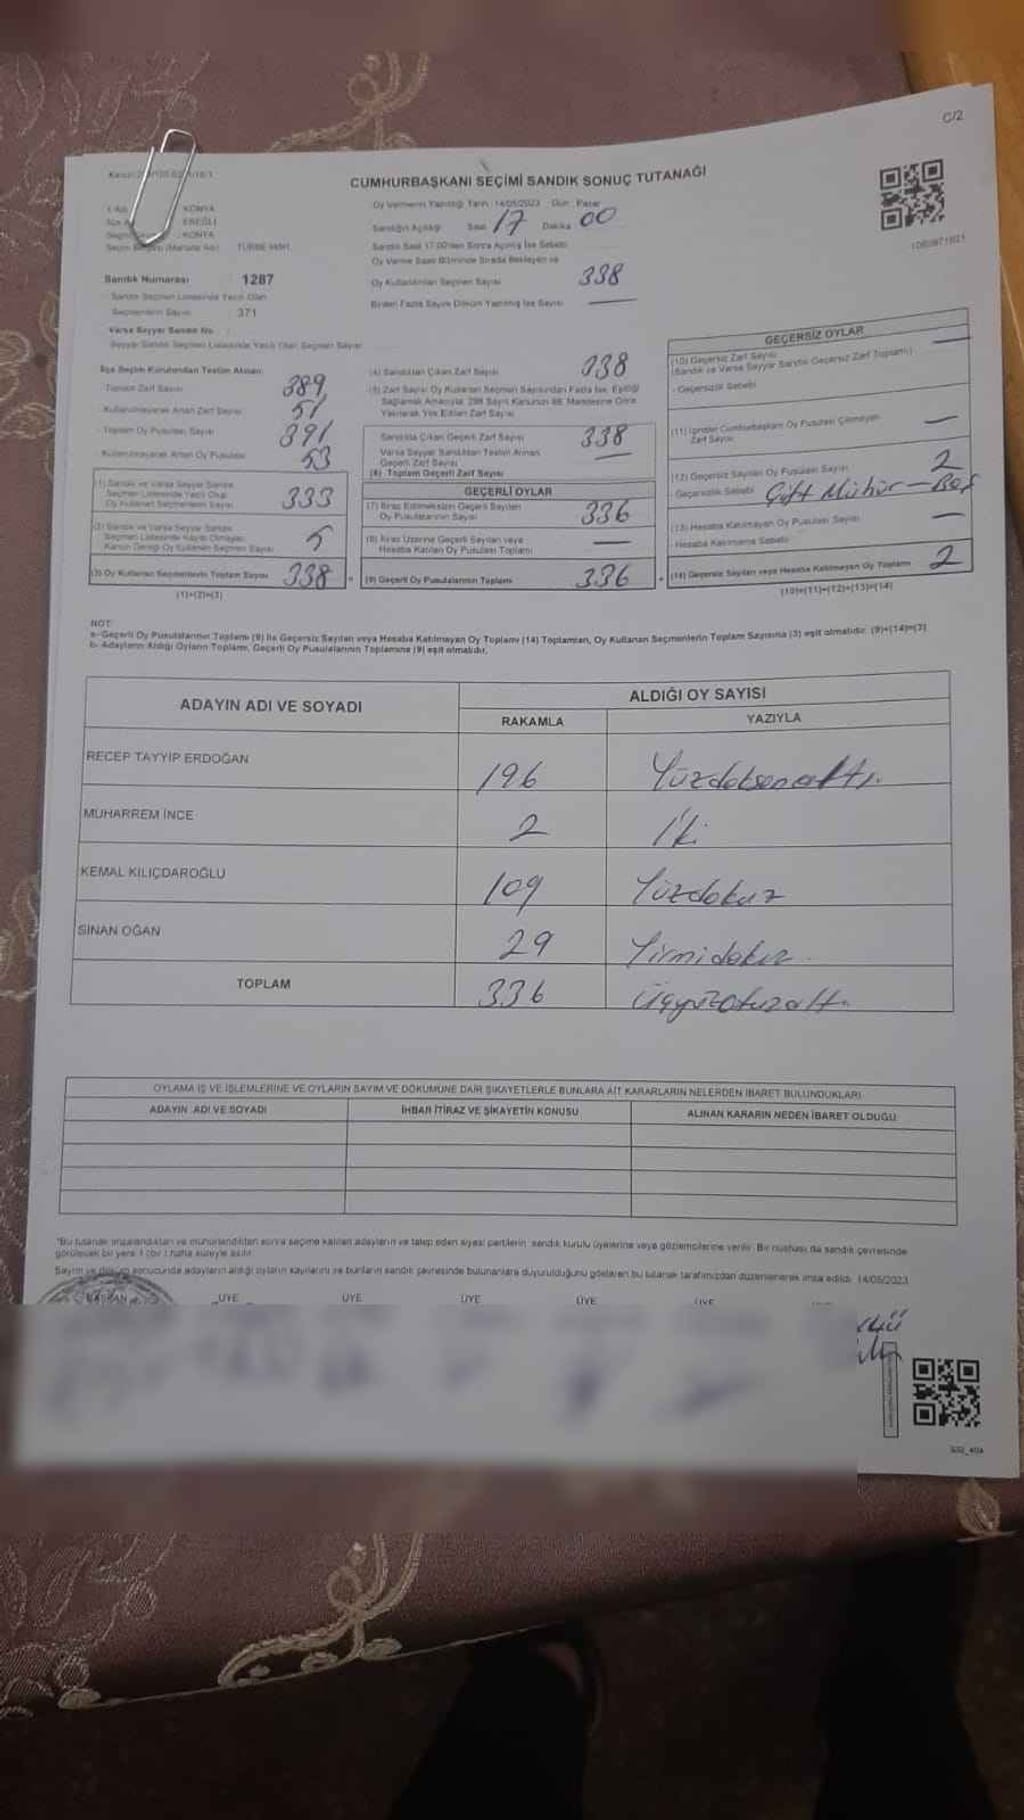 C/2
CUMHURBAŞKANI SEÇİMİ SANDIK SONUÇ TUTANAĞI
Oy Vermenin Yapıldığı Tarih : 14/05/2023 Gün : Pazar
Sandığın Açıldığı Saat 17 Dakika 00
Sandık Saat 17.00'den Sonra Açılmış İse Sebebi
Oy Verme Saati Bitiminde Sırada Bekleyen ve
Oy Kullandırılan Seçmen Sayısı 338
Birden Fazla Sayım Döküm Yapılmış İse Sayısı
KONYA
EREĞLİ
KONYA
Sandık Numarası 1287
Sandık Seçmen Listesinde Yazılı Olan
Seçmenlerin Sayısı : 371
Varsa Seyyar Sandık No :
Seyyar Sandık Seçmen Listesinde Yazılı Olan Seçmen Sayısı
İlçe Seçim Kurulundan Teslim Alınan
Toplam Zarf Sayısı 389
Kullanılmayarak Artan Zarf Sayısı 51
Toplam Oy Pusulası Sayısı 391
Kullanılmayarak Artan Oy Pusulası 53
(1) Sandık ve Varsa Seyyar Sandık
Seçmen Listesinde Yazılı Olup
Oy Kullanan Seçmenlerin Sayısı 333
(2) Sandık ve Varsa Seyyar Sandık
Seçmen Listesinde Kayıtlı Olmayıp
Kanun Gereği Oy Kullanan Seçmen Sayısı 5
(3) Oy Kullanan Seçmenlerin Toplam Sayısı 338
(1)+(2)=(3)
(4) Sandıktan Çıkan Zarf Sayısı 338
(5) Zarf Sayısı Oy Kullanan Seçmen Sayısından Fazla İse, Eşitliği
Sağlamak Amacıyla, 298 Sayılı Kanunun 98. Maddesine Göre
Yakılarak Yok Edilen Zarf Sayısı
Sandıkta Çıkan Geçerli Zarf Sayısı 338
Varsa Seyyar Sandıktan Teslim Alınan
Geçerli Zarf Sayısı
(6) Toplam Geçerli Zarf Sayısı
GEÇERLİ OYLAR
(7) İtiraz Edilmeksizin Geçerli Sayılan
Oy Pusulalarının Sayısı 336
(8) İtiraz Üzerine Geçerli Sayılan veya
Hesaba Katılan Oy Pusulası Toplamı
(9) Geçerli Oy Pusulalarının Toplamı 336
GEÇERSİZ OYLAR
(10) Geçersiz Zarf Sayısı
(Sandık ve Varsa Seyyar Sandık Geçersiz Zarf Toplamı)
- Geçersizlik Sebebi
(11) İçinden Cumhurbaşkanı Oy Pusulası Çıkmayan
Zarf Sayısı
(12) Geçersiz Sayılan Oy Pusulası Sayısı 2
- Geçersizlik Sebebi Çift Mühür - Boş
(13) Hesaba Katılmayan Oy Pusulası Sayısı
- Hesaba Katılmama Sebebi
(14) Geçersiz Sayılan veya Hesaba Katılmayan Oy Toplamı 2
(10)+(11)+(12)+(13)=(14)
NOT:
a- Geçerli Oy Pusulalarının Toplamı (9) ile Geçersiz Sayılan veya Hesaba Katılmayan Oy Toplamı (14) Toplamları, Oy Kullanan Seçmenlerin Toplam Sayısına (3) eşit olmalıdır. (9)+(14)=(3)
b- Adayların Aldığı Oyların Toplamı, Geçerli Oy Pusulalarının Toplamına (9) eşit olmalıdır.
ADAYIN ADI VE SOYADI ALDIĞI OY SAYISI
RAKAMLA YAZIYLA
RECEP TAYYİP ERDOĞAN 196 Yüzdoksanaltı.
MUHARREM İNCE 2 İki
KEMAL KILIÇDAROĞLU 109 Yüzdokuz
SİNAN OĞAN 29 Yirmidokuz
TOPLAM 336 Üçyüzotuzaltı.
OYLAMA İŞ VE İŞLEMLERİNE VE OYLARIN SAYIM VE DÖKÜMÜNE DAİR ŞİKAYETLERLE BUNLARA AİT KARARLARIN NELERDEN İBARET BULUNDUKLARI
ADAYIN ADI VE SOYADI İHBAR İTİRAZ VE ŞİKAYETİN KONUSU ALINAN KARARIN NEDEN İBARET OLDUĞU
*Bu tutanak imzalandıktan ve mühürlendikten sonra seçime katılan adayların ve talep eden siyasi partilerin sandık kurulu üyelerine veya gözlemcilerine verilir. Bir nüshası da sandık çevresinde
görülecek bir yere 1 (bir) hafta süreyle asılır.
Sayım ve döküm sonucunda adayların aldığı oyların kayıtlarını ve bunların sandık çevresinde bulunanlara duyurulduğunu gösteren bu tutanak tarafımızdan düzenlenerek imza edildi. 14/05/2023
BAŞKAN ÜYE ÜYE ÜYE ÜYE ÜYE